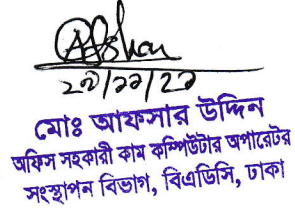 Afshar
২৩/১১/২১
মোঃ আফসার উদ্দিন
অফিস সহকারী কাম কম্পিউটার অপারেটর
সংস্থাপন বিভাগ, বিএডিসি, ঢাকা